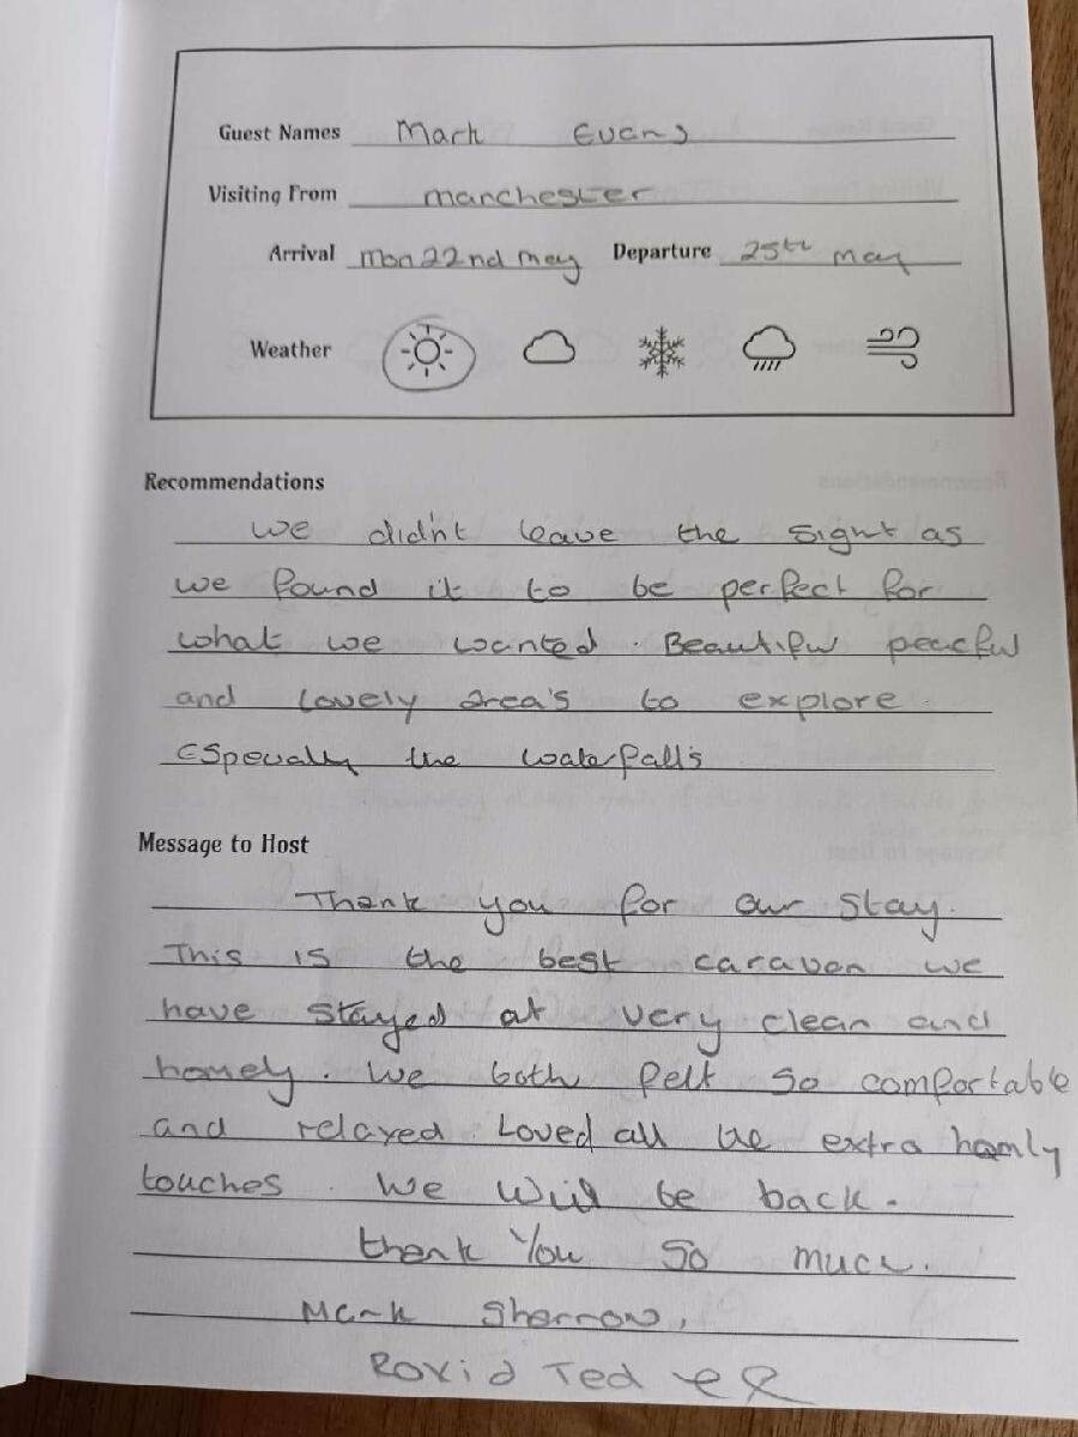 Guest Names Mark Evans
Visiting From Manchester
Arrival Mon 22nd May Departure 25th May
Weather
Recommendations
We didn't leave the sight as
we found it to be perfect for
what we wanted. Beautiful peaceful
and lovely area's to explore.
Especially the waterfalls
Message to Host
Thank you for our stay.
This is the best caravan we
have stayed at very clean and
homely. We both felt so comfortable
and relaxed. Loved all the extra homly
touches. We will be back.
thank You so much.
Mark Sharron,
Ted